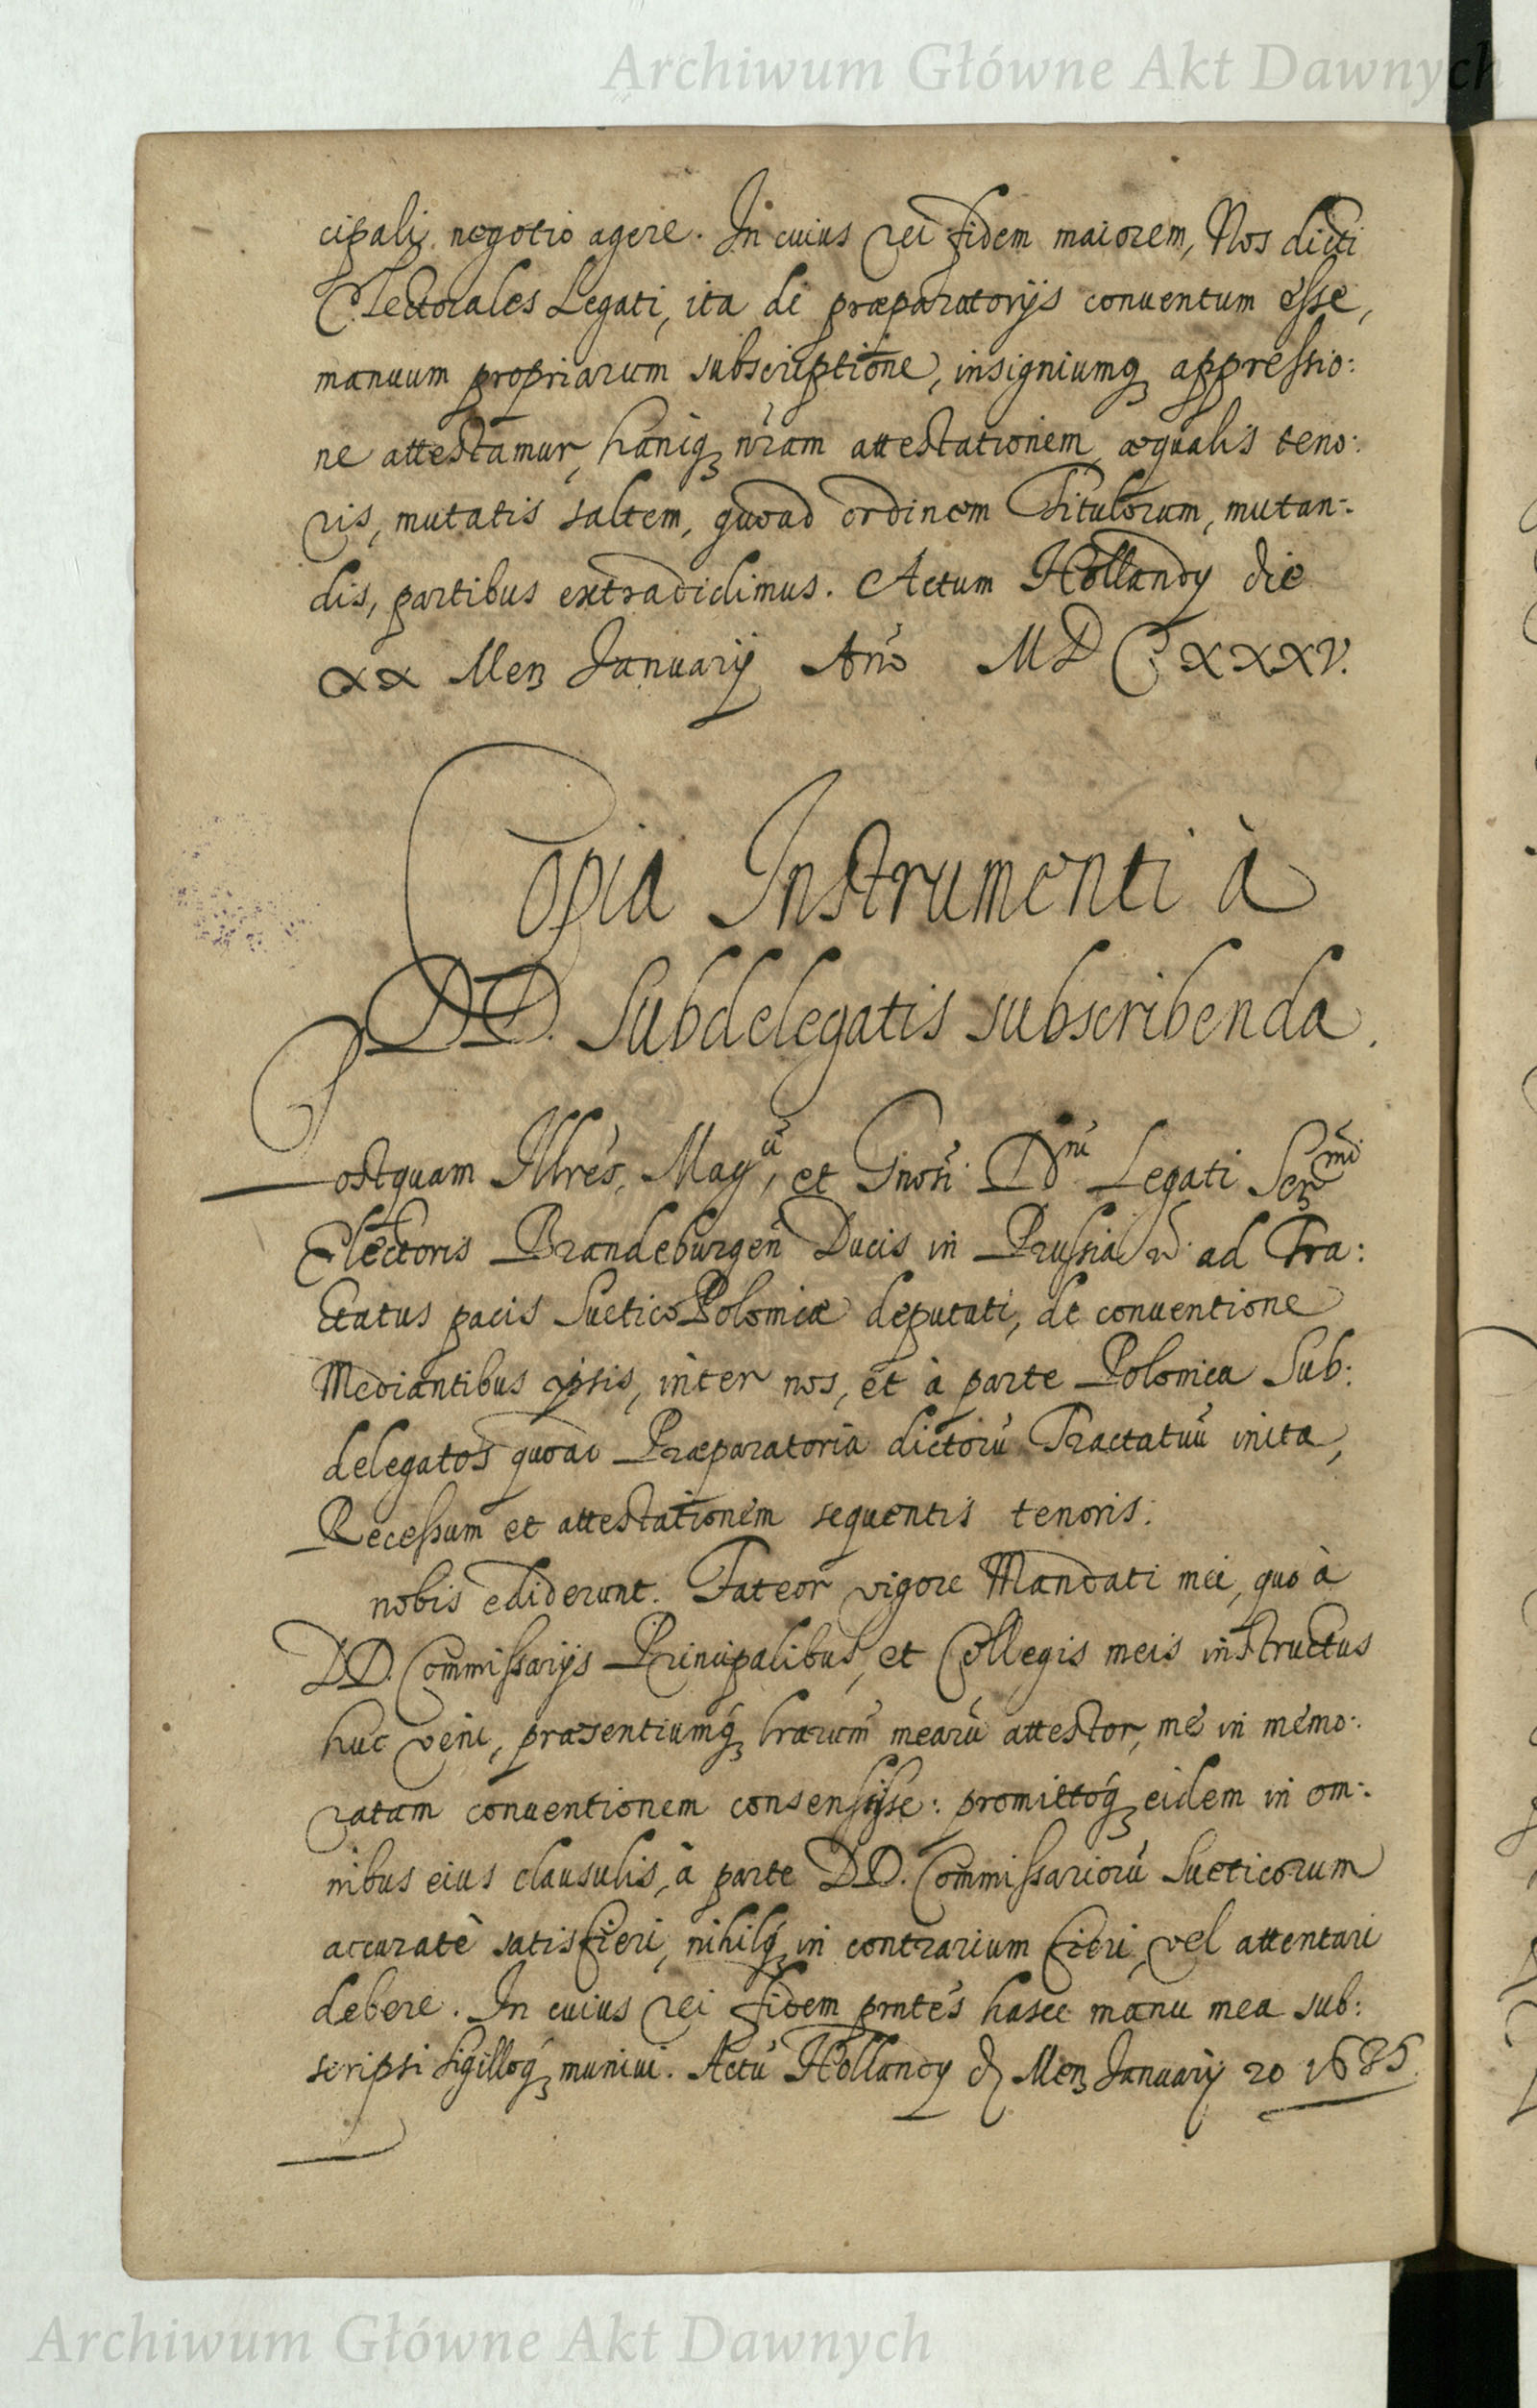 Archiwum Główne Akt Dawnych
cipali negotio agere. In cuius rei fidem maiorem, Nos dicti
Electorales Legati, ita de præparatorijs conuentum esse,
manuum propriarum subscriptione, insigniumq₃ appressio:
ne attestamur, hancq₃ nr̃am attestationem æqualis teno:
ris, mutatis saltem, quoad ordinem Titulorum, mutan:
dis, partibus extradidimus. Actum Hollandy die
XX Men₃ Januarij Año MDCXXXV.
Copia Instrumenti à
DD. Subdelegatis subscribenda.
Postquam Illrẽs, Mag^ci, et Gnosi Dn^ni Legati Ser^mi
Electoris Brandeburgeñ Ducis in Prussia ad Tra:
ctatus pacis Suetico Polonicæ deputati, de conuentione
Mediantibus ipsis, inter nos, et à parte Polonica Sub:
delegatos quoad Præparatoria dictorũ Tractatuũ inita,
Recessum et attestationem sequentis tenoris:
nobis ediderunt. Fateor vigore Mandati mei, quo à
DD. Commissarijs Principalibus, et Collegis meis instructus
huc veni, præsentiumq₃ lrarum mearũ attestor, me in memo:
ratam conuentionem consensisse: promittoq₃ eidem in om:
nibus eius clausulis, à parte DD. Commissariorũ Sueticorum
accuratè satisfieri, nihilq₃ in contrarium fieri, vel attentari
debere. In cuius rei fidem pñtes hasce manu mea sub:
scripsi sigilloq₃ muniui. Actũ Hollandy d Men₃ Januarij 20 1635.
Archiwum Główne Akt Dawnych